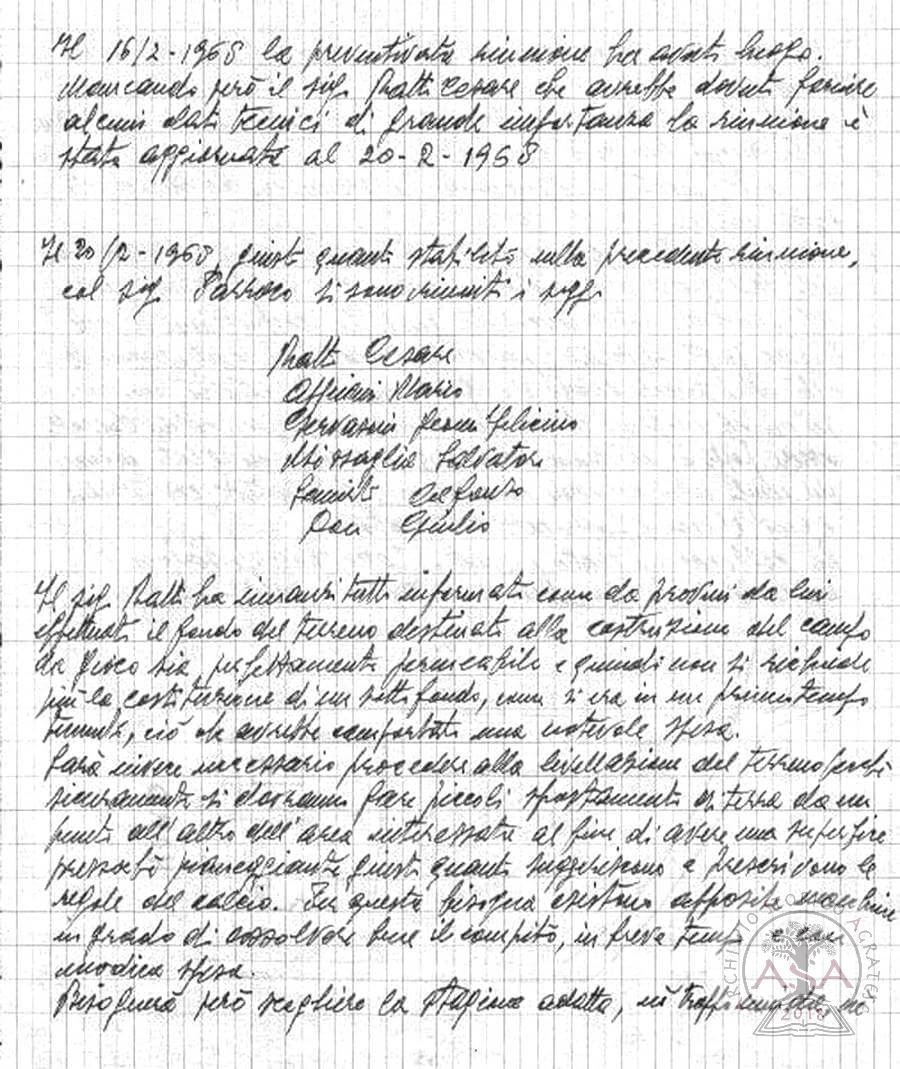 Il 16/2-1968 la preventivata riunione ha avuto luogo.
Mancando però il sig. Ratti Cesare che avrebbe dovuto fornire
alcuni dati tecnici di grande importanza la riunione è
stata aggiornata al 20-2-1968
Il 20/2-1968, giusto quanto stabilito nella precedente riunione,
col sig. Parroco si sono riuniti i sigg.
Ratti Cesare
Affrioni Mario
Gervasoni Felicino
Missaglia Salvatore
Alfonso
Don Giulio
Il sig. Ratti ha innanzi tutto informato come da provini da lui
effettuati il fondo del terreno destinato alla costruzione del campo
da gioco sia perfettamente permeabile e quindi non si richiede
più la costituzione di un sottofondo, come si era in un primo tempo
temuto, ciò che avrebbe comportato una notevole spesa.
Sarà invece necessario procedere alla livellazione del terreno perchè
sicuramente si dovranno fare piccoli spostamenti di terra da un
punto all'altro dell'area interessata al fine di avere una superfice
pressochè pianeggiante giusto quanto suggeriscono e prescrivono le
regole del calcio. Per questa bisogna esistono apposite macchine
in grado di assolvere bene il compito, in breve tempo e con
modica spesa.
Bisognerà però scegliere la stagione adatta, nè troppo umida, nè
ARCHIVIO STORICO AGRATESE
A.S.A
2018